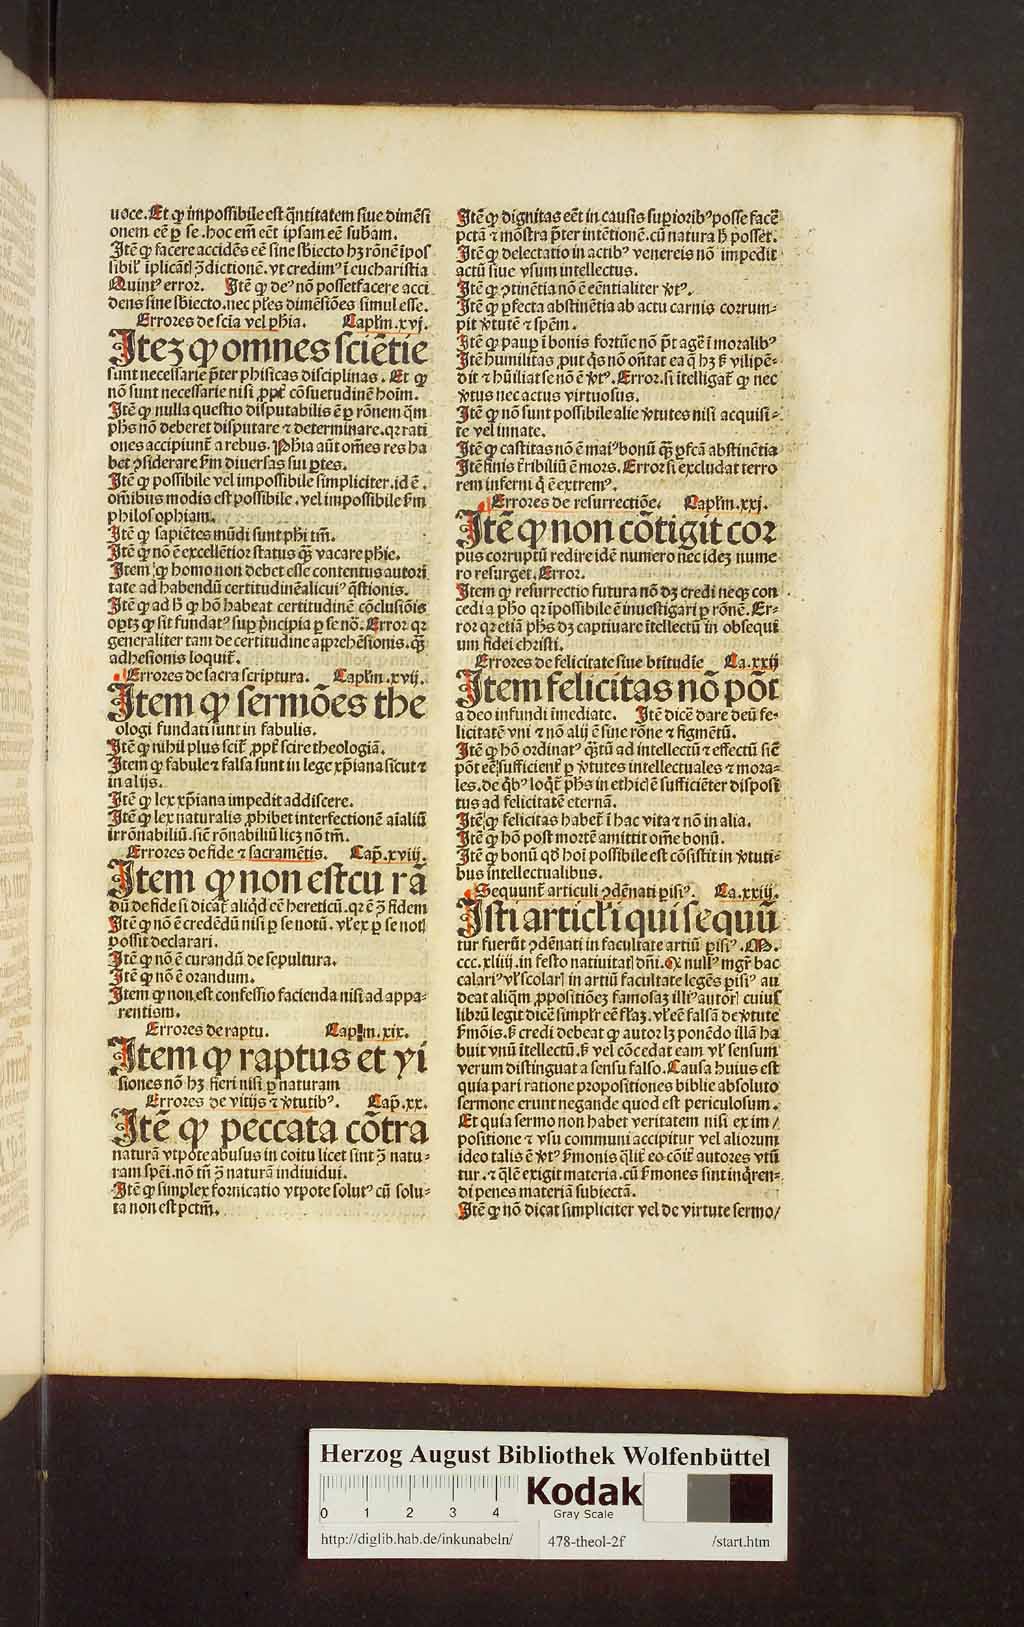 uoce. Et ꝙ impossibile est q̃ntitatem siue dimẽsi
onem eẽ ꝑ se. hoc em̃ eẽt ipsam eẽ subam̃.
Itẽ ꝙ facere accidẽs eẽ sine sbiecto hꝫ rõnẽ ĩpos
sibil' ĩplicãt ꝯdictionẽ. vt credim⁹ ĩ eucharistia
Quint⁹ error. Itẽ ꝙ de⁹ nõ posset facere acci
dens sine sbiecto. nec pl̃es dimẽsiões simul esse.
Errores de scĩa vel ph̃ia. Capl̃m. xvj.
Iteꝫ ꝙ omnes sciẽtie
sunt necessarie p̃ter phisicas disciplinas. Et ꝙ
nõ sunt necessarie nisi ꝓpt̃ cõsuetudinẽ hoĩm.
Itẽ ꝙ nulla questio disputabilis ẽ ꝑ rõnem q̃m
ph̃s nõ deberet disputare ⁊ determinare. qꝛ rati
ones accipiunt̃ a rebus. Ph̃ia aũt om̃es res ha
bet ꝯsiderare ẜm diuersas sui ꝑtes.
Itẽ ꝙ possibile vel impossibile simpliciter. id ẽ.
om̃ibus modis est possibile. vel impossibile ẜm
philosophiam.
Itẽ ꝙ sapiẽtes mũdi sunt ph̃i tm̃.
Itẽ ꝙ nõ ẽ excellẽtior status q̃ꝫ vacare ph̃ie.
Item ꝙ homo non debet esse contentus autori
tate ad habendũ certitudinẽ alicui⁹ q̃stionis.
Itẽ ꝙ ad h̃ ꝙ hõ habeat certitudinẽ cõclusiõis
oꝑtꝫ ꝙ sit fundat⁹ suꝑ p̃ncipia ꝑ se nõ. Error qꝛ
generaliter tam de certitudine apprehẽsionis. q̃ꝫ
adhesionis loquit̃.
Errores de sacra scriptura. Capl̃m. xvij.
Item ꝙ sermões the
ologi fundati sunt in fabulis.
Itẽ ꝙ nihil plus scit̃ ꝓpt̃ scire theologiã.
Item ꝙ fabule ⁊ falsa sunt in lege xp̃iana sicut ⁊
in alijs.
Itẽ ꝙ lex xp̃iana impedit addiscere.
Itẽ ꝙ lex naturalis ꝓhibet interfectionẽ aĩaliũ
irrõnabiliũ. siẽ rõnabiliũ licꝫ nõ tm̃.
Errores de fide ⁊ sacramẽtis. Cap̃. xviij.
Item ꝙ non est cu rã
dũ de fide si dicat̃ aliq̃d eẽ hereticũ. qꝛ ẽ ꝯ̃ fidem
Itẽ ꝙ nõ ẽ credẽdũ nisi ꝑ se notũ. vl̃ ex ꝑ se not
possit declarari.
Itẽ ꝙ nõ ẽ curandũ de sepultura.
Itẽ ꝙ nõ ẽ orandum.
Item ꝙ non est confessio facienda nisi ad appa-
rentiam.
Errores de raptu. Capl̃m. xix.
Item ꝙ raptus et vi
siones nõ hꝫ fieri nisi ꝑ naturam
Errores de vitijs ⁊ v̓tutib⁹. Cap̃. xx.
Itẽ ꝙ peccata cõtra
naturã vtpote abusus in coitu licet sint ꝯ̃ natu-
ram spẽi. nõ tm̃ ꝯ̃ naturã indiuidui.
Itẽ ꝙ simplex fornicatio vtpote solut⁹ cũ solu-
ta non est pctm̃.
Itẽ ꝙ dignitas eẽt in causis suꝑiorib⁹ posse facẽ
pctã ⁊ mõstra p̃ter intẽtionẽ. cũ natura h̃ posset.
Itẽ ꝙ delectatio in actib⁹ venereis nõ impedit
actũ siue vsum intellectus.
Itẽ ꝙ ꝯtinẽtia nõ ẽ eẽntialiter v̓t⁹.
Itẽ ꝙ ꝑfecta abstinẽtia ab actu carnis corrum-
pit v̓tutẽ ⁊ spẽm.
Itẽ ꝙ pauꝑ ĩ bonis fortũe nõ p̃t agẽ ĩ moralib⁹
Itẽ humilitas ꝓut q̃s nõ oñtat ea q̃ hꝫ ẜ vilipẽ-
dit ⁊ hũiliat se nõ ẽ v̓t⁹. Error. si ĩtelligat̃ ꝙ nec
v̓tus nec actus virtuosus.
Itẽ ꝙ nõ sunt possibile alie v̓tutes nisi acquisi-
te vel innate.
Itẽ ꝙ castitas nõ ẽ mai⁹ bonũ q̃ꝫ ꝑfcã abstinẽtia
Itẽ finis t̃ribiliũ ẽ mors. Error si excludat terro
rem inferni q̃ ẽ extrem⁹.
Errores de resurrectiõe. Capl̃m. xxj.
Itẽ ꝙ non cõtigit cor
pus corruptũ redire idẽ numero nec ideꝫ nume
ro resurget. Error.
Item ꝙ resurrectio futura nõ dꝫ credi neqꝫ con
cedi a ph̃o qꝛ ĩpossibile ẽ inuestigari ꝑ rõnẽ. Er-
ror qꝛ etiã ph̃s dꝫ captiuare ĩtellectũ in obsequi
um fidei christi.
Errores de felicitate siue btitudĩe Ca. xxij
Item felicitas nõ põt
a deo infundi ĩmediate. Itẽ dicẽ dare deũ fe-
licitatẽ vni ⁊ nõ alij ẽ sine rõne ⁊ figmẽtũ.
Itẽ ꝙ hõ ordinat⁹ q̃tũ ad intellectũ ⁊ effectũ siẽ
põt eẽ sufficient̃ ꝑ v̓tutes intellectuales ⁊ mora-
les. de q̃b⁹ loq̃t̃ ph̃s in ethic ẽ sufficiẽter disposi
tus ad felicitatẽ eternã.
Itẽ ꝙ felicitas habet̃ ĩ hac vita ⁊ nõ in alia.
Itẽ ꝙ hõ post mortẽ amittit om̃e bonũ.
Itẽ ꝙ bonũ qd̃ hoĩ possibile est cõsistit in v̓tuti-
bus intellectualibus.
Sequunt̃ articuli ꝯdẽnati ꝑisi⁹. Ca. xxiij.
Isti articl̃i qui sequũ
tur fuerũt ꝯdẽnati in facultate artiũ ꝑisi⁹. M.
ccc. xliiij. in festo natiuitat dñi. Q null⁹ mgr̃ bac
calari⁹ vl̃ scolar in artiũ facultate legẽs ꝑisi⁹ au
deat aliqm̃ ꝓpositiõeꝫ famosaꝫ illi⁹ autor cuius
librũ legit dicẽ simpl̃r eẽ fl̃aꝫ. vl̃ eẽ falsã de v̓tute
ẜmõis. ẜ credi debeat ꝙ autor lꝫ ponẽdo illã ha
buit vnũ ĩtellectũ. ẜ vel cõcedat eam vl̃ sensum
verum distinguat a sensu falso. Causa huius est
quia pari ratione propositiones biblie absoluto
sermone erunt negande quod est periculosum.
Et quia sermo non habet veritatem nisi ex im/
positione ⁊ vsu communi accipitur vel aliorum
ideo talis ẽ v̓t⁹ ẜmonis q̃lit̃ eo cõit̃ autores vtũ
tur. ⁊ q̃lẽ exigit materia. cũ ẜmones sint inq̃ren-
di penes materiã subiectã.
Itẽ ꝙ nõ dicat simpliciter vel de virtute sermo/
Herzog August Bibliothek Wolfenbüttel
0 1 2 3 4
Kodak
Gray Scale
http://diglib.hab.de/inkunabeln/ 478-theol-2f /start.htm